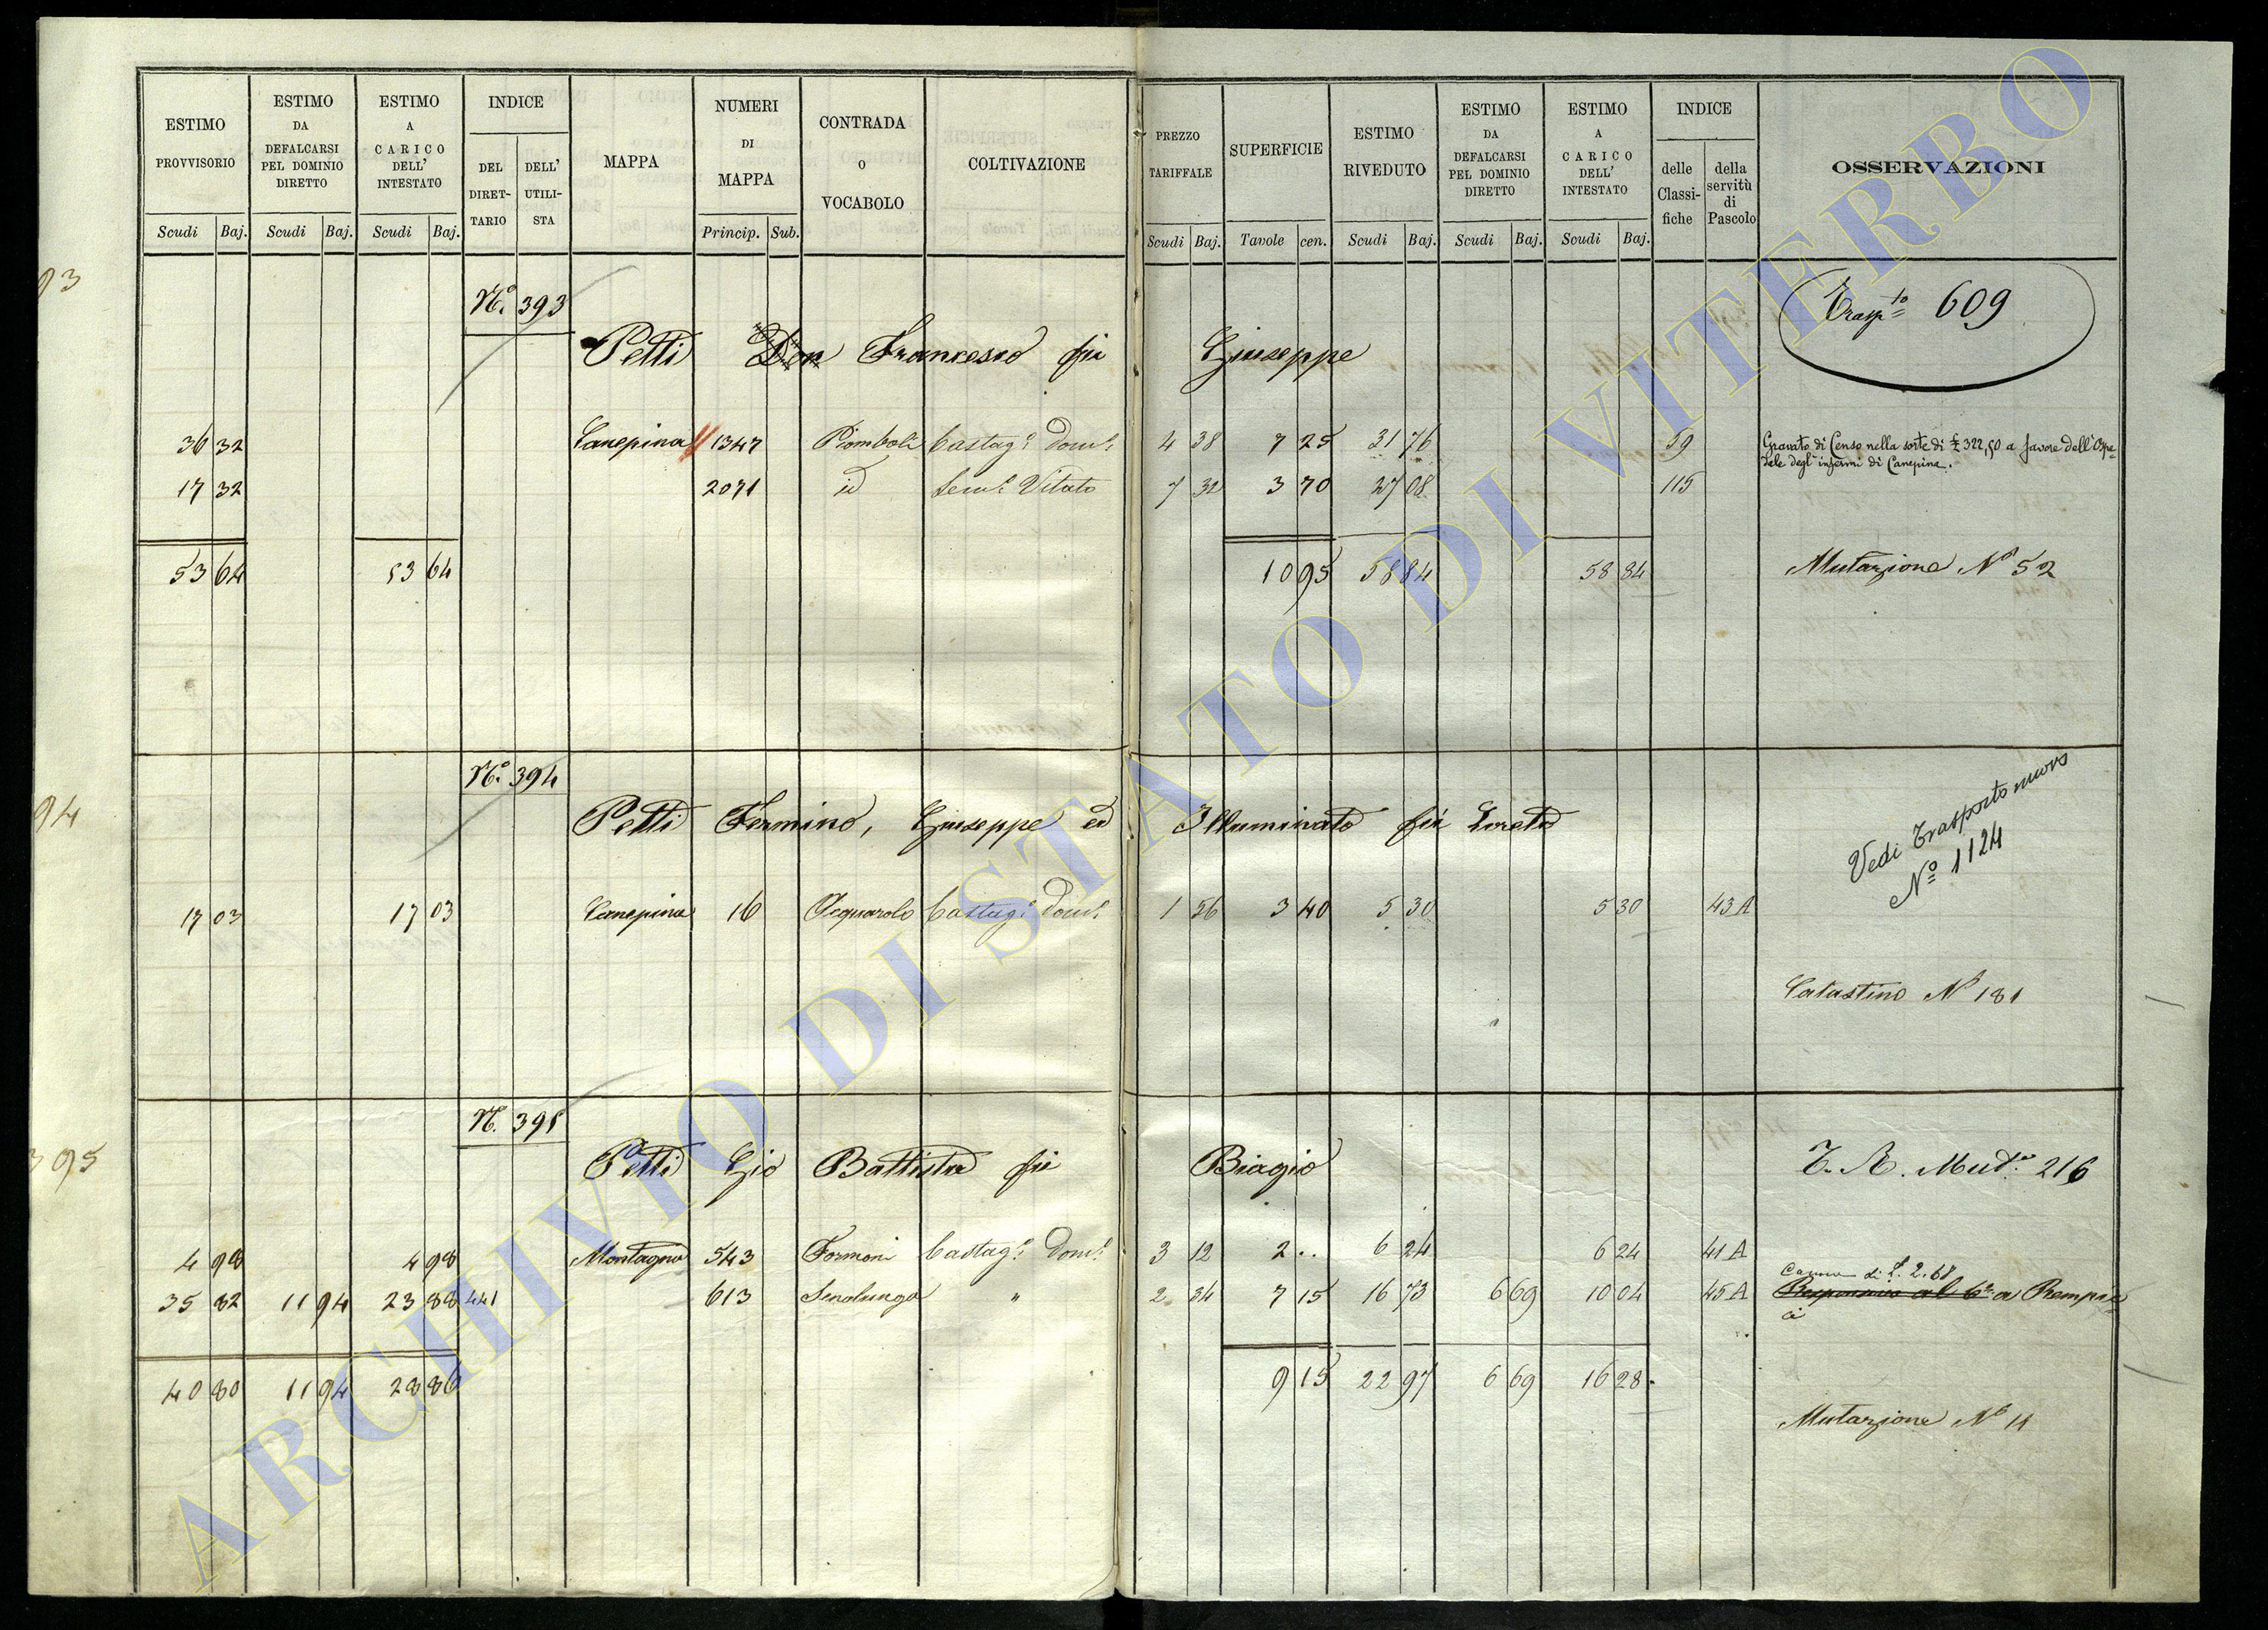 ESTIMO PROVVISORIO
ESTIMO DA DEFALCARSI PEL DOMINIO DIRETTO
ESTIMO A CARICO DELL' INTESTATO
INDICE
DEL DIRET-TARIO
DELL' UTILI-STA
MAPPA
NUMERI DI MAPPA
CONTRADA O VOCABOLO
COLTIVAZIONE
PREZZO TARIFFALE
SUPERFICIE
ESTIMO RIVEDUTO
ESTIMO DA DEFALCARSI PEL DOMINIO DIRETTO
ESTIMO A CARICO DELL' INTESTATO
INDICE
delle Classi-fiche
della servitù di Pascolo
OSSERVAZIONI
Scudi Baj. Scudi Baj. Scudi Baj. Princip. Sub. Scudi Baj. Tavole cen. Scudi Baj. Scudi Baj. Scudi Baj.
93
N.° 393
Trasp.to 609
Petti Don Francesco fu Giuseppe
36 32 Canepina 1347 Piomboli Castag.o Dom.o 4 38 7 25 31 76 59 Gravato di Censo nella sorte di £ 322,50 a favore dell'Ospe-
dale degl'infermi di Canepina.
17 32 2071 id Sem.o Vitato 7 32 3 70 27 08 115
53 64 53 64 10 95 58 84 58 84 Mutazione N° 52
94
N.° 394
Petti Fermino, Giuseppe ed Illuminato fu Loreto
Vedi Trasporto nuovo
N° 1124
17 03 17 03 Canepina 16 Acquarolo Castag.o Dom.o 1 56 3 40 5 30 5 30 43 A
Catastino N° 181
395
N. 395
Petti Gio Battista fu Biagio T. A. Mut.e 216
4 98 4 98 Montagna 543 Formoni Castag.o Dom.o 3 12 2 .. 6 24 6 24 41 A
Canone di £. 2.68
35 82 11 94 23 88 441 613 " 2 34 7 15 16 73 6 69 10 04 45 A Responsivo al 6.° a
40 80 11 94 28 86 9 15 22 97 6 69 16 28
Mutazione N° 11
ARCHIVIO DI STATO DI VITERBO